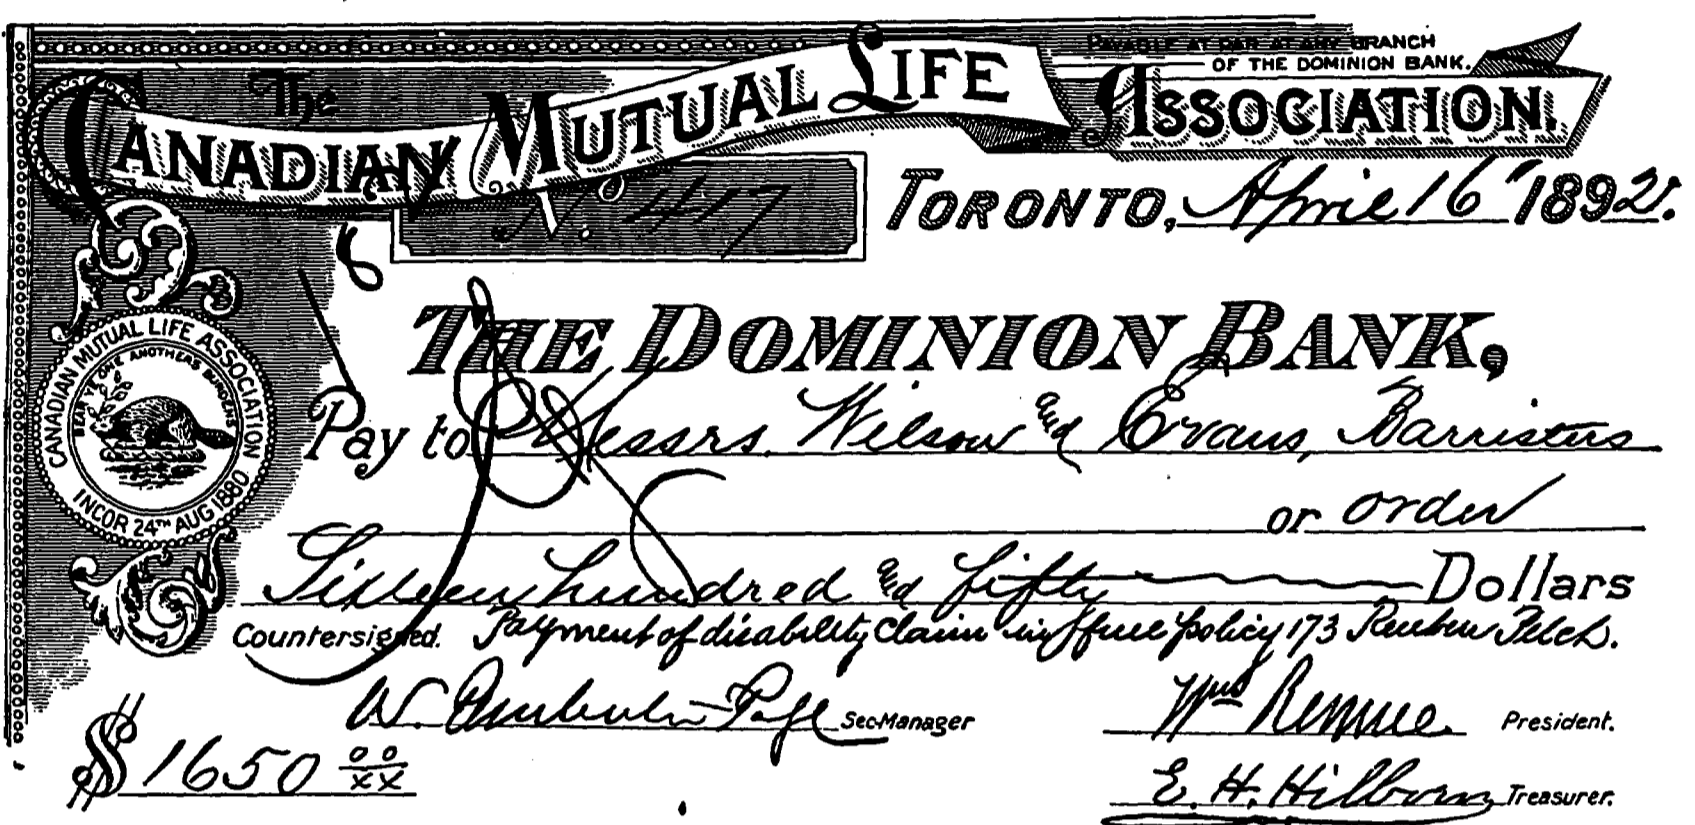 PAYABLE AT PAR AT ANY BRANCH
OF THE DOMINION BANK.
The
CANADIAN MUTUAL LIFE ASSOCIATION.
No. 417
TORONTO, April 16" 1892.
THE DOMINION BANK,
CANADIAN MUTUAL LIFE ASSOCIATION
BEAR YE ONE ANOTHERS BURDENS
INCOR 24TH AUG 1880
Pay to Messrs. Wilson and Evans, Barristers
or order
Sixteen hundred and fifty Dollars
Countersigned. Payment of disability claim in full policy 173 Reuben
W. Pemberton Page Sec-Manager
Wm Rennie President.
$1650 00/xx
E. H. Hilborn Treasurer.